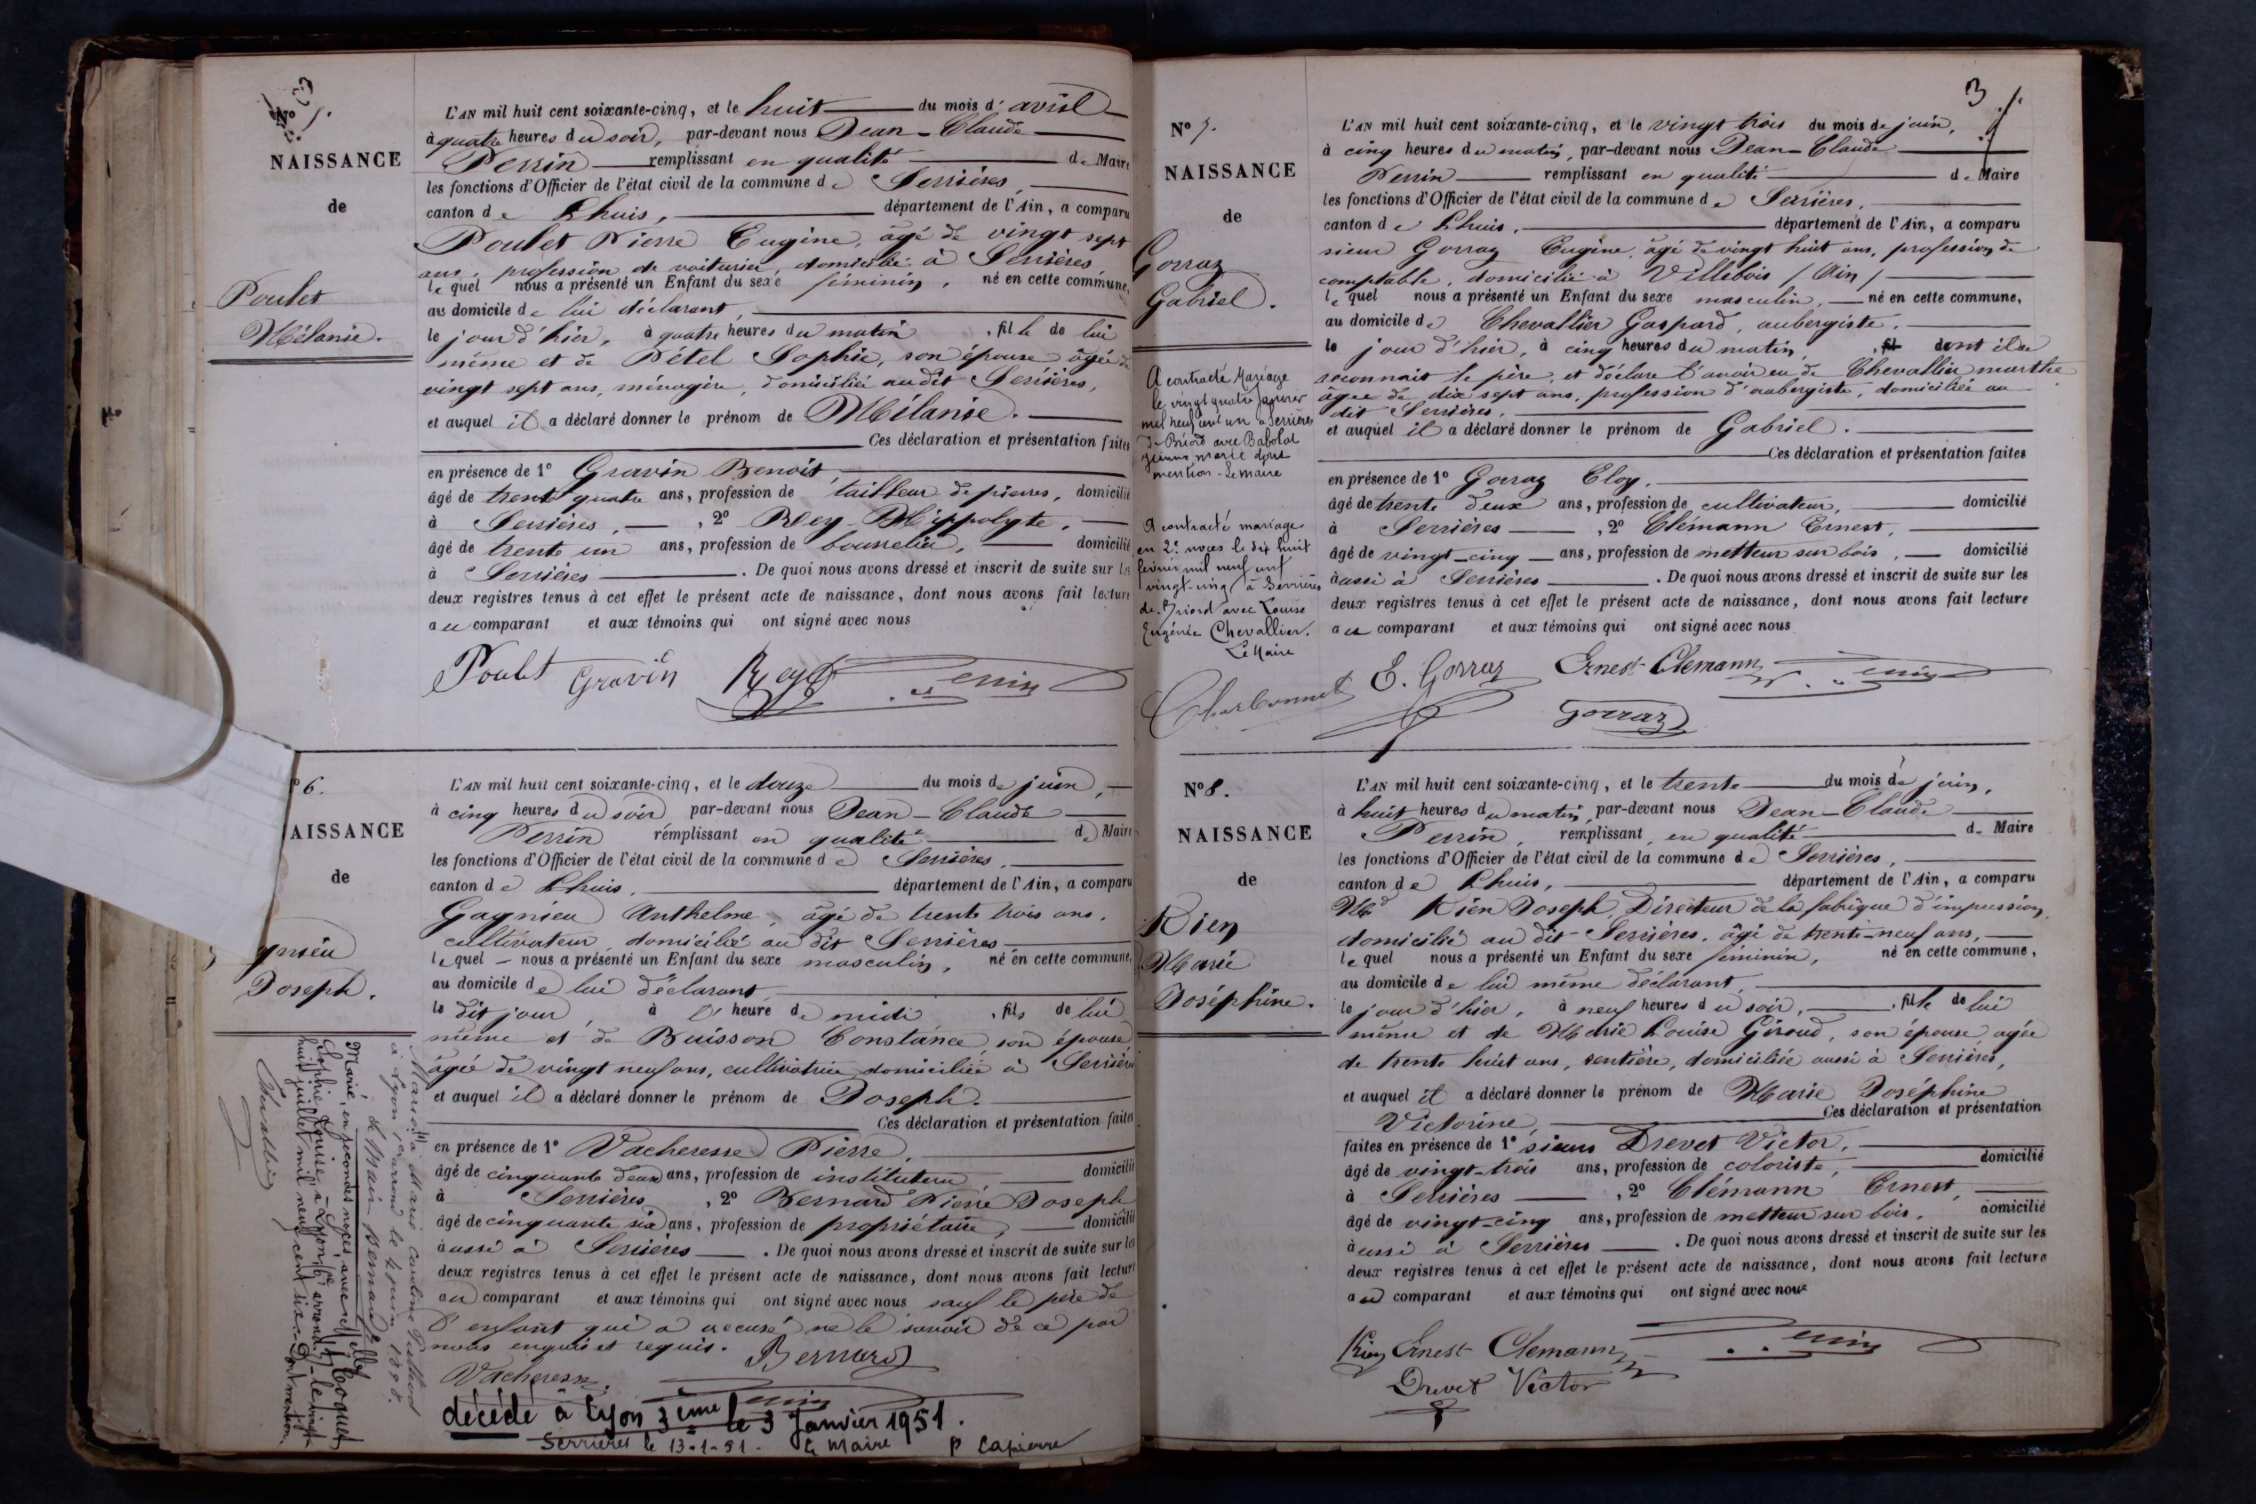 NAISSANCE
de
Poulet
Mélanie.
L'AN mil huit cent soixante-cinq, et le huit du mois d' avril
à quatre heures du soir, par-devant nous Jean-Claude
Perrin remplissant en qualité de Maire
les fonctions d'Officier de l'état civil de la commune de Serrières,
canton de Lhuis, département de l'Ain, a comparu
Poulet Pierre Eugène, âgé de vingt sept
ans, profession de voiturier, domicilié à Serrières
lequel nous a présenté un Enfant du sexe féminin, né en cette commune,
au domicile de lui déclarant,
le jour d'hier, à quatre heures du matin, fille de lui
même et de Pétel Sophie, son épouse âgée de
vingt sept ans, ménagère, domiciliée audit Serrières,
et auquel il a déclaré donner le prénom de Mélanie.
Ces déclaration et présentation faites
en présence de 1° Gravin Benoit,
âgé de trente quatre ans, profession de tailleur de pierres, domicilié
à Serrières, 2° Rey Hippolyte,
âgé de trente un ans, profession de bourrelier, domicilié
à Serrières. De quoi nous avons dressé et inscrit de suite sur les
deux registres tenus à cet effet le présent acte de naissance, dont nous avons fait lecture
au comparant et aux témoins qui ont signé avec nous
Poulet Gravin Rey Perrin
N° 6.
NAISSANCE
de
gnieu
Joseph.
L'AN mil huit cent soixante-cinq, et le douze du mois de juin,
à cinq heures du soir, par-devant nous Jean-Claude
Perrin remplissant en qualité de Maire
les fonctions d'Officier de l'état civil de la commune de Serrières,
canton de Lhuis, département de l'Ain, a comparu
Gagnieu Anthelme, âgé de trente trois ans,
cultivateur, domicilié au dit Serrières
lequel nous a présenté un Enfant du sexe masculin, né en cette commune,
au domicile de lui déclarant
le dit jour, à l'heure de midi, fils de lui
même et de Buisson Constance, son épouse
âgée de vingt neuf ans, cultivatrice domiciliée à Serrières
et auquel il a déclaré donner le prénom de Joseph.
Ces déclaration et présentation faites
en présence de 1° Vacheresse Pierre,
âgé de cinquante deux ans, profession de instituteur domicilié
à Serrières, 2° Bernard Pierre Joseph
âgé de cinquante six ans, profession de propriétaire, domicilié
aussi à Serrières. De quoi nous avons dressé et inscrit de suite sur les
deux registres tenus à cet effet le présent acte de naissance, dont nous avons fait lecture
au comparant et aux témoins qui ont signé avec nous sauf le père de
l'enfant qui a accusé ne le savoir de ce par
nous enquis et requis.
Bernard
Vacheresse. Perrin
décédé à Lyon 3ème le 3 Janvier 1951.
Serrières le 13-1-51. Le Maire
à Lyon le 4 juin 1898.
Marié, en secondes noces avec Melle Coquet
Sophie Louise à Lyon arrond. le vingt
huit juillet mil neuf cent six. Dont mention.
N° 7.
NAISSANCE
de
Gorraz
Gabriel.
A contracté Mariage
le vingt quatre janvier
mil neuf cent un à Serrières
de Briord avec Babolat
Jeanne Marie dont
mention. Le Maire
A contracté mariage
en 2e noces le dix huit
février mil neuf cent
vingt-cinq à Serrières
de Briord avec Louise
Eugénie Chevallier.
Le Maire
Charbonnet
3
L'AN mil huit cent soixante-cinq, et le vingt trois du mois de juin,
à cinq heures du matin, par-devant nous Jean-Claude
Perrin remplissant en qualité de Maire
les fonctions d'Officier de l'état civil de la commune de Serrières,
canton de Lhuis, département de l'Ain, a comparu
sieur Gorraz Eugène, âgé de vingt huit ans, profession de
comptable, domicilié à Villebois (Ain)
lequel nous a présenté un Enfant du sexe masculin, né en cette commune,
au domicile de Chevallier Gaspard, aubergiste,
le jour d'hier, à cinq heures du matin, fil dont il se
reconnait le père, et déclare l'avoir eu de Chevallier marthe
âgée de dix sept ans, profession d'aubergiste, domiciliée au
dit Serrières,
et auquel il a déclaré donner le prénom de Gabriel.
Ces déclaration et présentation faites
en présence de 1° Gorraz Eloy,
âgé de trente deux ans, profession de cultivateur, domicilié
à Serrières, 2° Clémann Ernest,
âgé de vingt-cinq ans, profession de metteur sur bois, domicilié
aussi à Serrières. De quoi nous avons dressé et inscrit de suite sur les
deux registres tenus à cet effet le présent acte de naissance, dont nous avons fait lecture
au comparant et aux témoins qui ont signé avec nous
E. Gorraz Ernest Clemann Perrin
Gorraz
N° 8.
NAISSANCE
de
Rien
Marie
Joséphine.
L'AN mil huit cent soixante-cinq, et le trente du mois de juin,
à huit heures du matin, par-devant nous Jean-Claude
Perrin, remplissant en qualité de Maire
les fonctions d'Officier de l'état civil de la commune de Serrières,
canton de Lhuis, département de l'Ain, a comparu
Rien Joseph Directeur de la fabrique d'impression,
domicilié au dit Serrières, âgé de trente-neuf ans,
lequel nous a présenté un Enfant du sexe féminin, né en cette commune,
au domicile de lui même déclarant,
le jour d'hier, à neuf heures du soir, fille de lui
même et de Marie Louise Giroud, son épouse, agée
de trente huit ans, rentière, domiciliée aussi à Serrières,
et auquel il a déclaré donner le prénom de Marie Joséphine
Victorine, Ces déclaration et présentation
faites en présence de 1° sieur Drevet Victor,
âgé de vingt-trois ans, profession de coloriste, domicilié
à Serrières, 2° Clémann Ernest,
âgé de vingt-cinq ans, profession de metteur sur bois, domicilié
aussi à Serrières. De quoi nous avons dressé et inscrit de suite sur les
deux registres tenus à cet effet le présent acte de naissance, dont nous avons fait lecture
au comparant et aux témoins qui ont signé avec nous
Rien Ernest Clemann Perrin
Drevet Victor